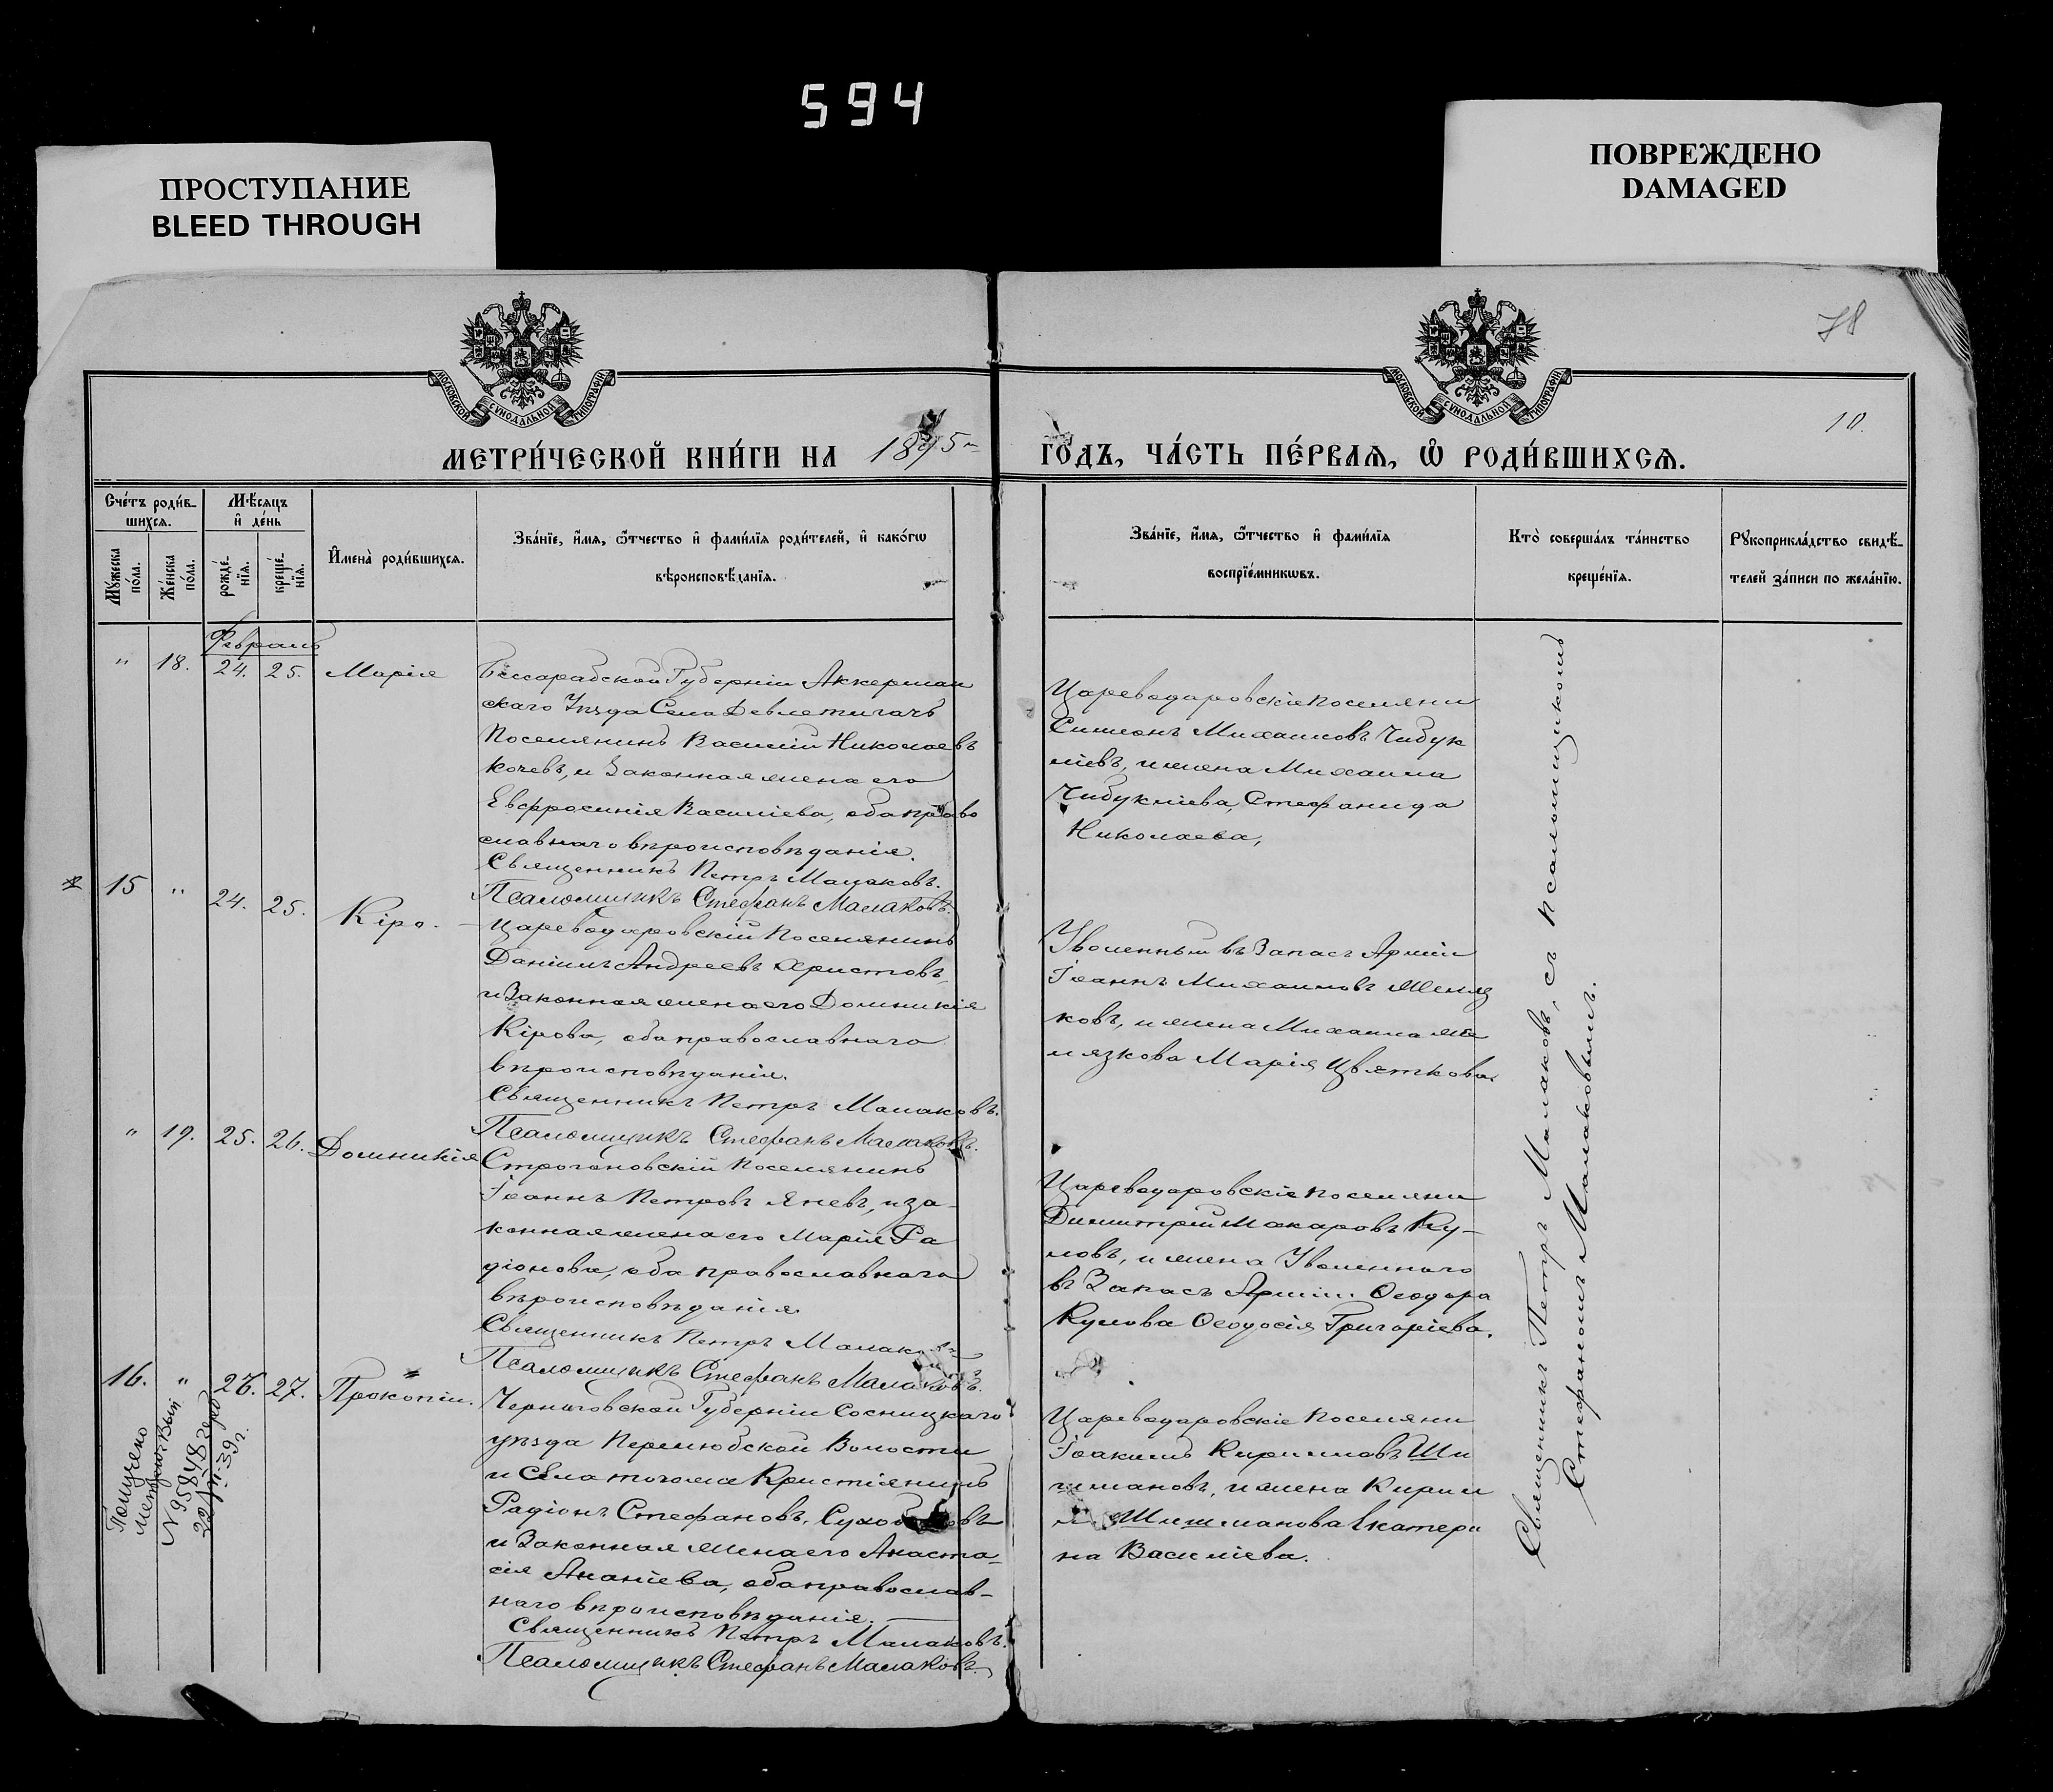 594
ПРОСТУПАНИЕ
BLEED THROUGH
ПОВРЕЖДЕНО
DAMAGED
78
МОСКОВСКОЙ СѴНОДАЛЬНОЙ ТИПОГРАФІИ
МОСКОВСКОЙ СѴНОДАЛЬНОЙ ТИПОГРАФІИ
10.
МЕТРИ́ЧЕСКОЙ КНИ́ГИ НА 1895 ГО́ДЪ, ЧА́СТЬ ПЕ́РВАѦ, Ѡ҆ РОДИ́ВШИХСѦ.
Сче́тъ роди́в-
шихсѧ.
Мѣ́сѧцъ
и҆ де́нь
Мꙋ́жеска
по́ла.
Же́нска
по́ла.
рожде́-
нїѧ.
креще́-
нїѧ.
И҆мена̀ роди́вшихсѧ.
Зва́нїе, и҆́мѧ, ѻ҆́тчество и҆ фами́лїѧ роди́телей, и҆ како́гѡ
вѣроисповѣ́данїѧ.
Зва́нїе, и҆́мѧ, ѻ҆́тчество и҆ фами́лїѧ
воспрїе́мникѡвъ.
Кто̀ соверша́лъ та́инство
креще́нїѧ.
Рꙋкоприкла́дство свидѣ́-
телей за́писи по жела́нїю.
Февраль
" 18. 24. 25. Марія
Бессарабской Губерніи Аккерман
скаго Уѣзда Села Девлетигачъ
Поселянинъ Василій Николаевъ
Кочевъ, и Законная жена его
Евфросинія Василіева, оба право
славнаго вѣроисповѣданія.
Священникъ Петръ Малаковъ.
Псаломщикъ Стефанъ Малаковъ.
Цареводаровскіе поселяни
Симеонъ Михаиловъ Чибук
ліевъ, и жена Михаила
Чибукліева, Стефанида
Николаева,
15 " 24. 25. Кіро.
Цареводаровскій Поселянинъ
Даніилъ Андреевъ Христовъ,
и Законная жена его Домникія
Кірова, оба православнаго
вѣроисповѣданія.
Священникъ Петръ Малаковъ.
Псаломщикъ Стефанъ Малаковъ.
Уволенный въ Запасъ Арміи
Іоаннъ Михаиловъ Желяз
ковъ, и жена Михаила Же
лязкова Марія Цвяткова
" 19. 25. 26. Домникія
Строгановскій Поселянинъ
Іоаннъ Петровъ Яневъ, и за-
конная жена его Марія Ра
діонова, оба православнаго
вѣроисповѣданія
Священникъ Петръ Малаковъ
Псаломщикъ Стефанъ Малаковъ.
Цареводаровскіе поселяни
Димитрій Макаровъ Ку-
ловъ, и жена Уволеннаго
въ Запасъ Арміи Ѳеодора
Кулова Ѳеодосія Григоріева.
16. " 26. 27. Прокопій.
Черниговской Губерніи Сосницкаго
уѣзда Перелюбской Волости
и Села тогоже Кристіянинъ
Радіонъ Стефановъ,
и Законная жена его Анаста-
сія Ананіева, оба православ-
наго вѣроисповѣданія.
Священникъ Петръ Малаковъ.
Псаломщикъ Стефанъ Малаковъ.
Цареводаровскіе поселяни
Іоакимъ Кирилловъ Ши
шмановъ, и жена Кирил
ла Шишманова Екатери
на Василіева.
Получено
N 95848
Священникъ Петръ Малаковъ, съ псаломщикомъ
Стефаномъ Малаковымъ.